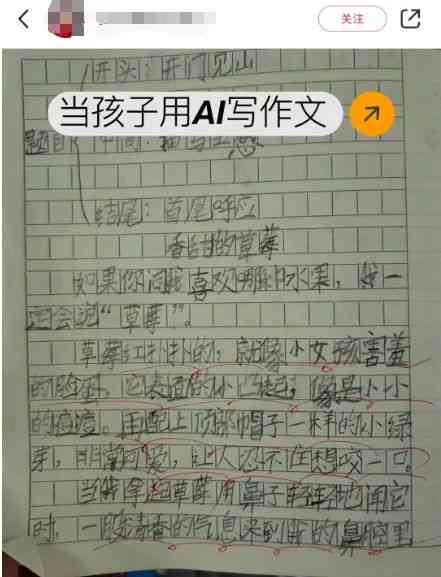 关注
开头：开门见山
当孩子用AI写作文
题目
结尾：首尾呼应
香甜的草莓
如果你问我喜欢哪种水果，我一
定会说“草莓”。
草莓红扑扑的，就像小女孩害羞
的脸蛋，它表面的小凸起，像是小小
的痘痘。再配上顶部帽子一样的小绿
芽，非常可爱，让人忍不住想咬一口。
当我拿起草莓用鼻子轻轻地闻它
时，一股清香的气息来到我的鼻腔里